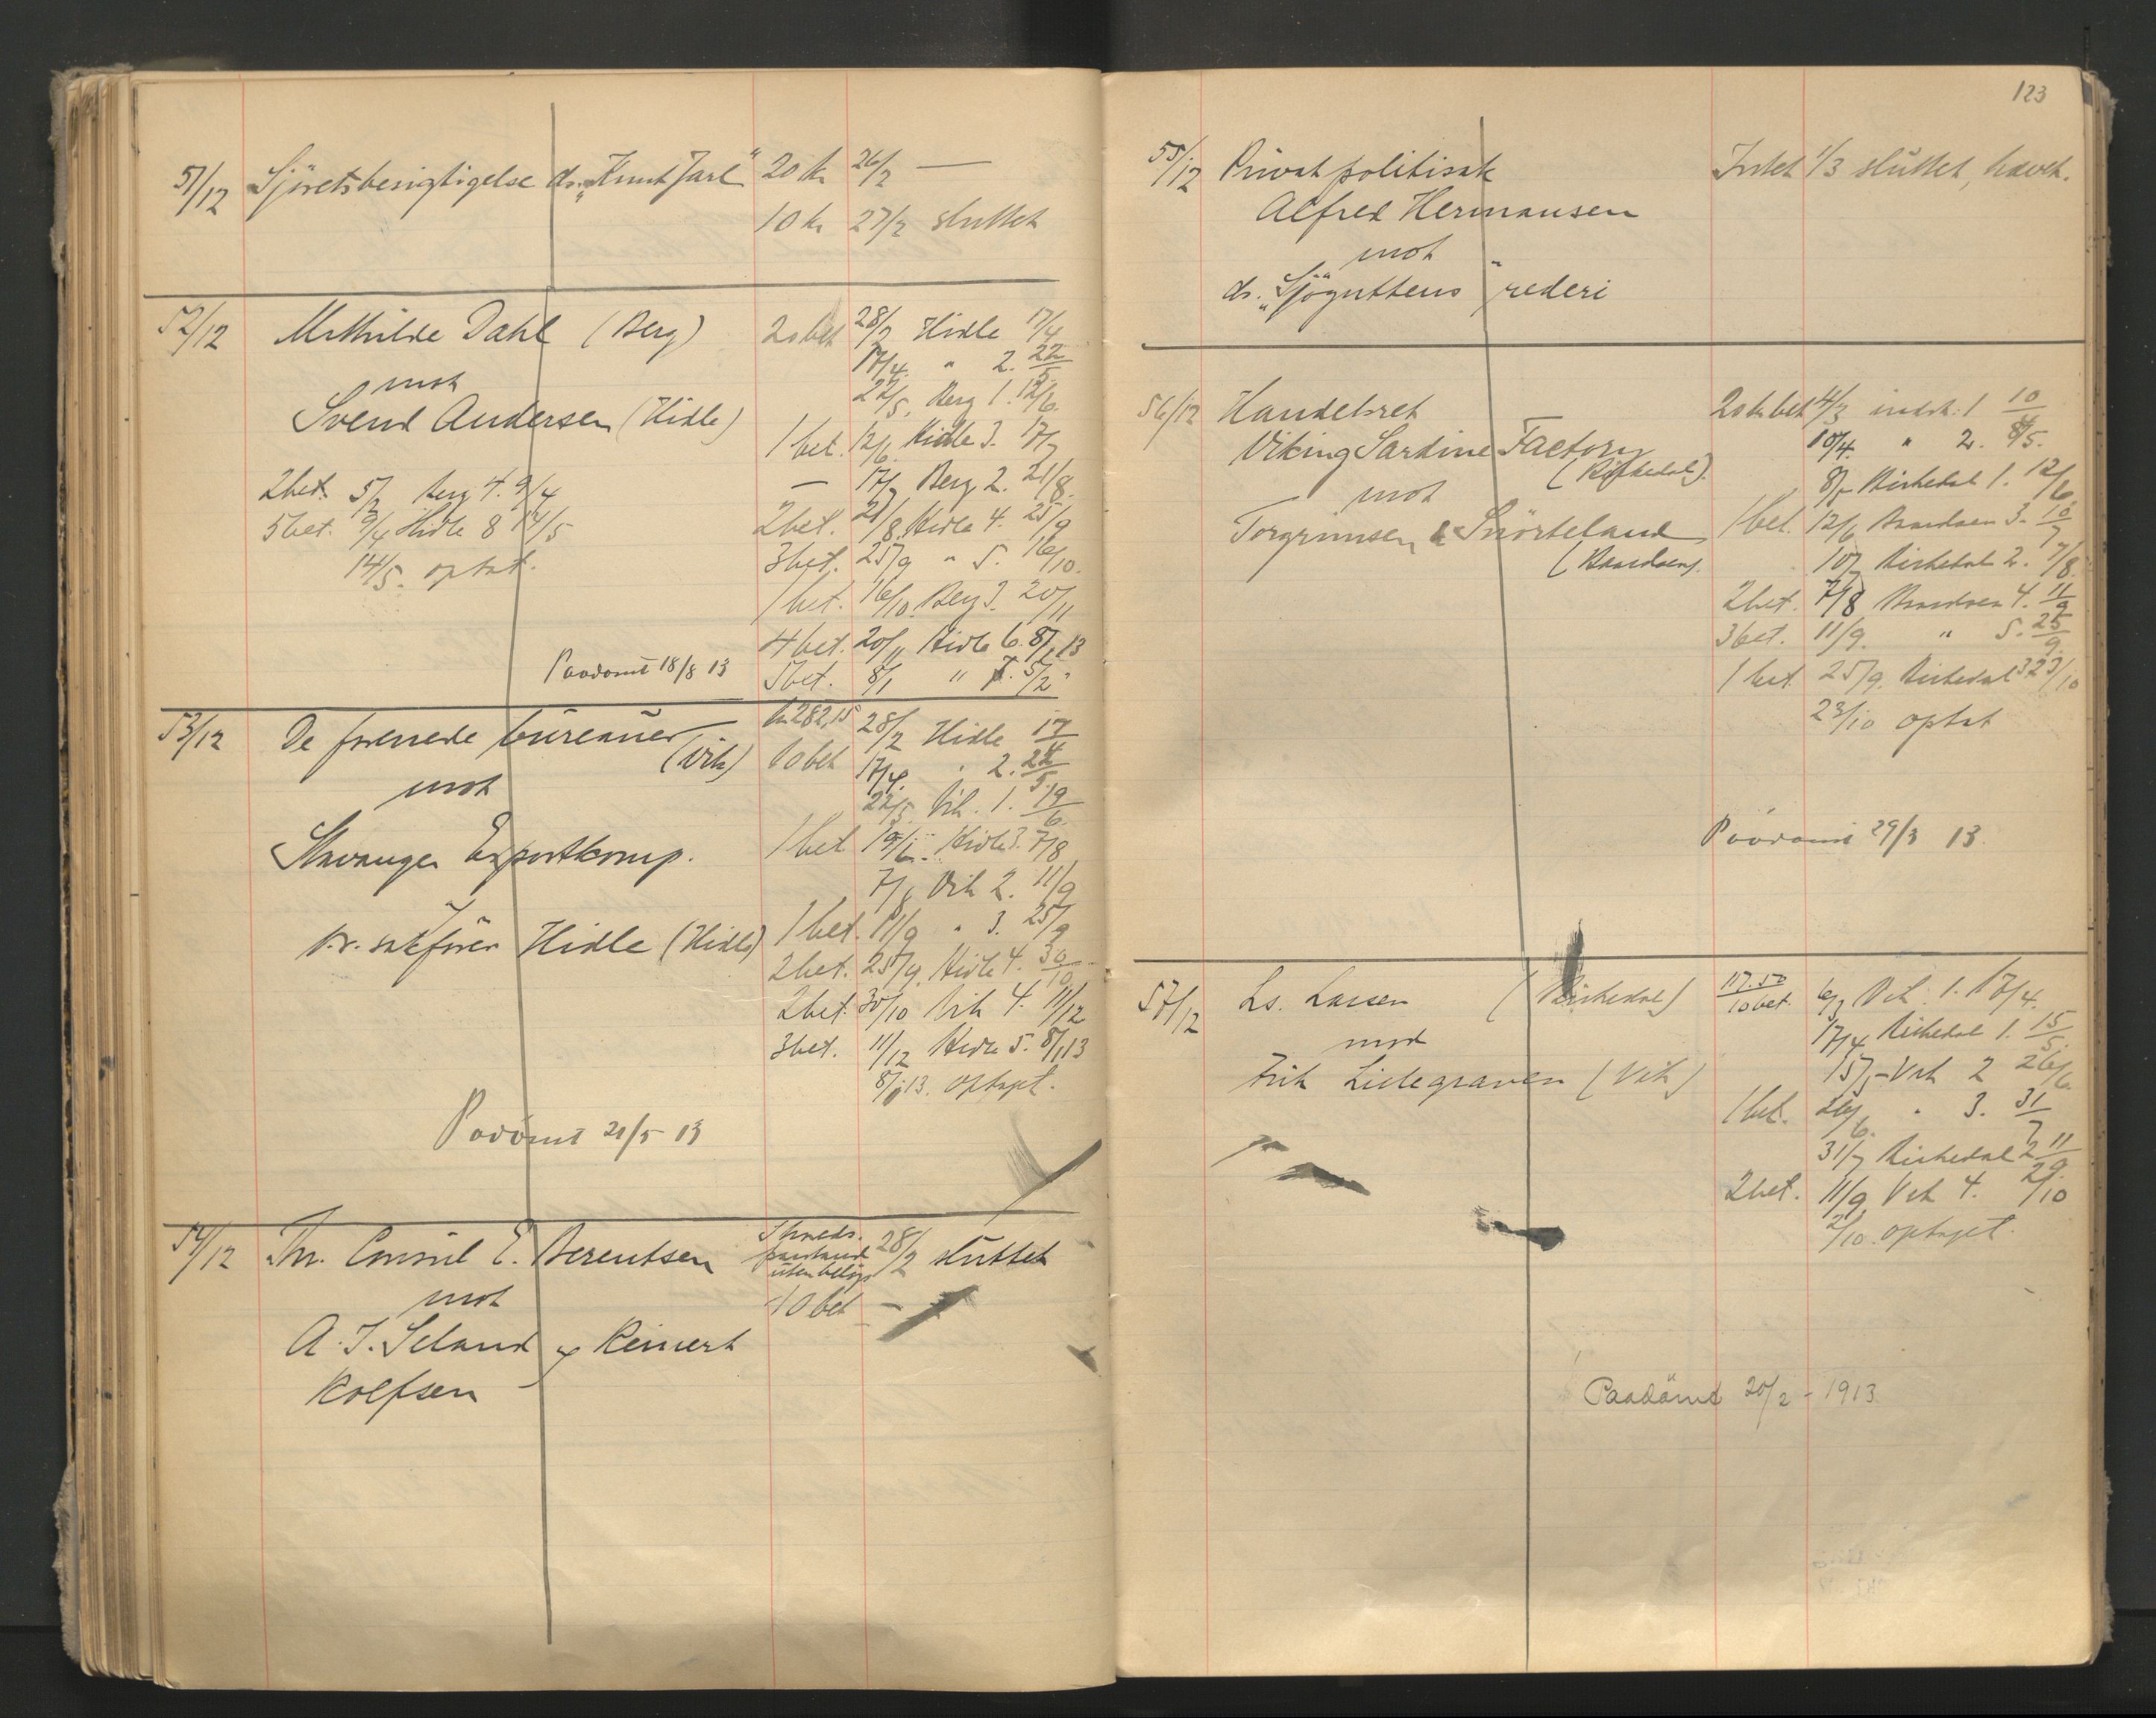 51/12 Sjöretsbesigtigelse ds. „Knut Jarl" 20 kr 26/2 —
10 kr 27/2 sluttet
52/12 Mathilde Dahl (Berg) 20 bet 28/2 Hidle 17/4
mot 17/4. " 2. 22/5
Svend Andersen (Hidle) 22/5. Berg 1. 12/6.
1 bet. 12/6. Hidle 3. 17/7
— 17/7 Berg 2. 21/8.
2 bet. 5/2 Berg 4. 9/4
5 bet. 9/4 Hidle 8 14/5
14/5. optat.
2 bet. 21/8. Hidle 4. 25/9
3 bet. 25/9 " 5. 16/10.
1 bet. 16/10. Berg 3. 20/11
4 bet. 20/11 Hidle 6. 8/1 13
Paadömt 18/8 13 5 bet. 8/1 " 7. 5/2
53/12 De forenede bureauer (Vik) kr 282,15 28/2 Hidle 17/4
10 bet 17/4. " 2. 22/5.
mot 22/5. Vik. 1. 19/6.
Stavanger Exportkomp. 1 bet 19/6. Hidle 3. 7/8
7/8 Vik 2. 11/9
v. sakförer Hidle (Hidle) 1 bet. 11/9 " 3. 25/9
2 bet. 25/9. Hidle 4. 30/10
2 bet. 30/10 Vik 4. 11/12
3 bet. 11/12 Hidle 5. 8/1 13
8/1 13. optaget.
Paadömt 21/5 13
54/12 Th. Consul E. Berentsen 28/2 sluttet
uten beløp
mot 10 bet —
A. J. Seland & Reinert
Rolfsen
123
55/12 Privat politisak Intet 1/3 sluttet, hævet.
Alfred Hermansen
mot
ds. „Sjöguttens" rederi
56/12 Handelsret 20 kr bet 4/3 indst. 1 10/4
Viking Sardine Factory 10/4. " 2. 8/5.
(Birkedal). 8/5 Birkedal 1. 12/6
mot
Torgrimsen & Snörteland 1 bet. 12/6 Baardsen 3. 10/7
(Baardsen). 10/7 Birkedal 2. 7/8.
2 bet. 7/8 Baardsen 4. 11/9
3 bet. 11/9. " 5. 25/9.
1 bet 25/9. Birkedal 3 23/10
23/10 optat
Paadömt 29/3 13.
57/12 Ls. Larsen (Birkedal) 117.50 6/3 Vik. 1. 17/4.
10 bet. 17/4 Birkedal 1. 15/5.
mod 15/5 - Vik 2 26/6.
Erik Lillegraven (Vik) 1 bet. 26/6. " 3. 31/7
31/7 Birkedal 2 11/9
2 bet. 11/9 Vik 4. 2/10
2/10. optaget.
Paadömt 20/2 - 1913.